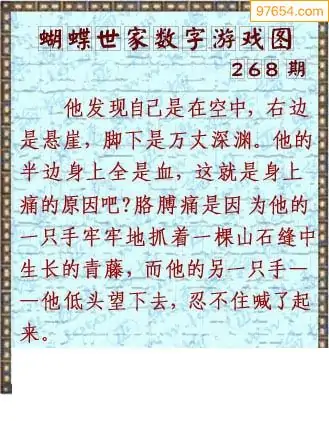 97654.com
蝴蝶世家数字游戏图
268期
他发现自己是在空中，右边
是悬崖，脚下是万丈深渊。他的
半边身上全是血，这就是身上
痛的原因吧?胳膊痛是因为他的
一只手牢牢地抓着一棵山石缝中
生长的青藤，而他的另一只手—
—他低头望下去，忍不住喊了起
来。